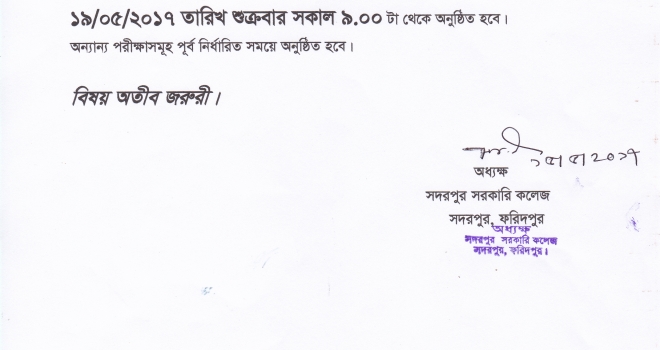 ১৯/০৫/২০১৭ তারিখ শুক্রবার সকাল ৯.০০ টা থেকে অনুষ্ঠিত হবে।
অন্যান্য পরীক্ষাসমূহ পূর্ব নির্ধারিত সময়ে অনুষ্ঠিত হবে।
বিষয় অতীব জরুরী।
১৫/৫/২০১৭
অধ্যক্ষ
সদরপুর সরকারি কলেজ
সদরপুর, ফরিদপুর
অধ্যক্ষ
সদরপুর সরকারি কলেজ
সদরপুর, ফরিদপুর।